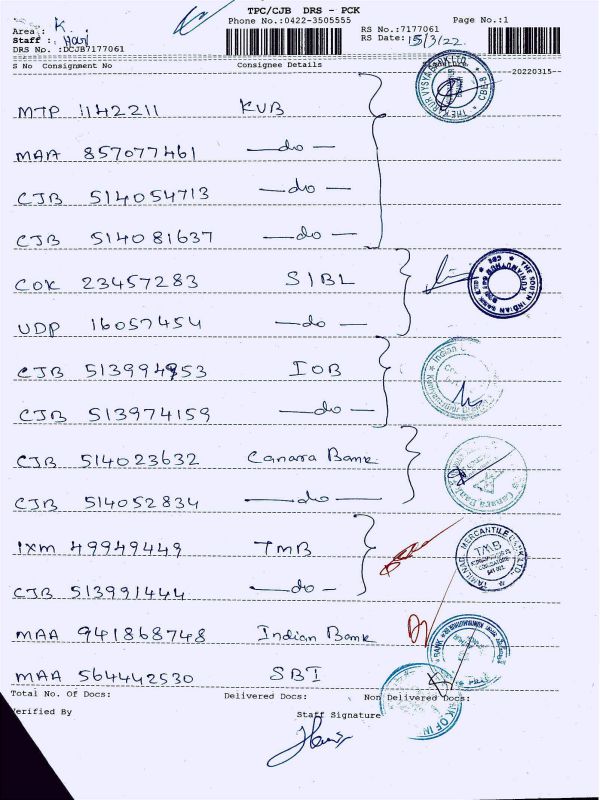 TPC/CJB DRS - PCK
Phone No.:0422-3505555
Page No.:1
Area : K.
Staff : Hari
DRS No. :DCJB7177061
RS No.:7177061
RS Date: 15/3/22
S No Consignment No Consignee Details 20220315
MTP 1142211 KVB
MAA 857077461 —do—
CJB 514054713 —do—
CJB 514081637 —do—
COK 23457283 SIBL
UDP 16057454 —do—
CJB 513994953 IOB
CJB 513974159 —do—
CJB 514023632 Canara Bank
CJB 514052834 —do—
IXM 49949449 TMB
CJB 513991444 —do—
MAA 941868748 Indian Bank
MAA 564442530 SBI
Total No. Of Docs: Delivered Docs: Non Delivered Docs:
Verified By Staff Signature
THE KARUR VYSYA BANK LTD
THE SOUTH INDIAN BANK
TAMILNAD MERCANTILE BANK LTD.
TMB